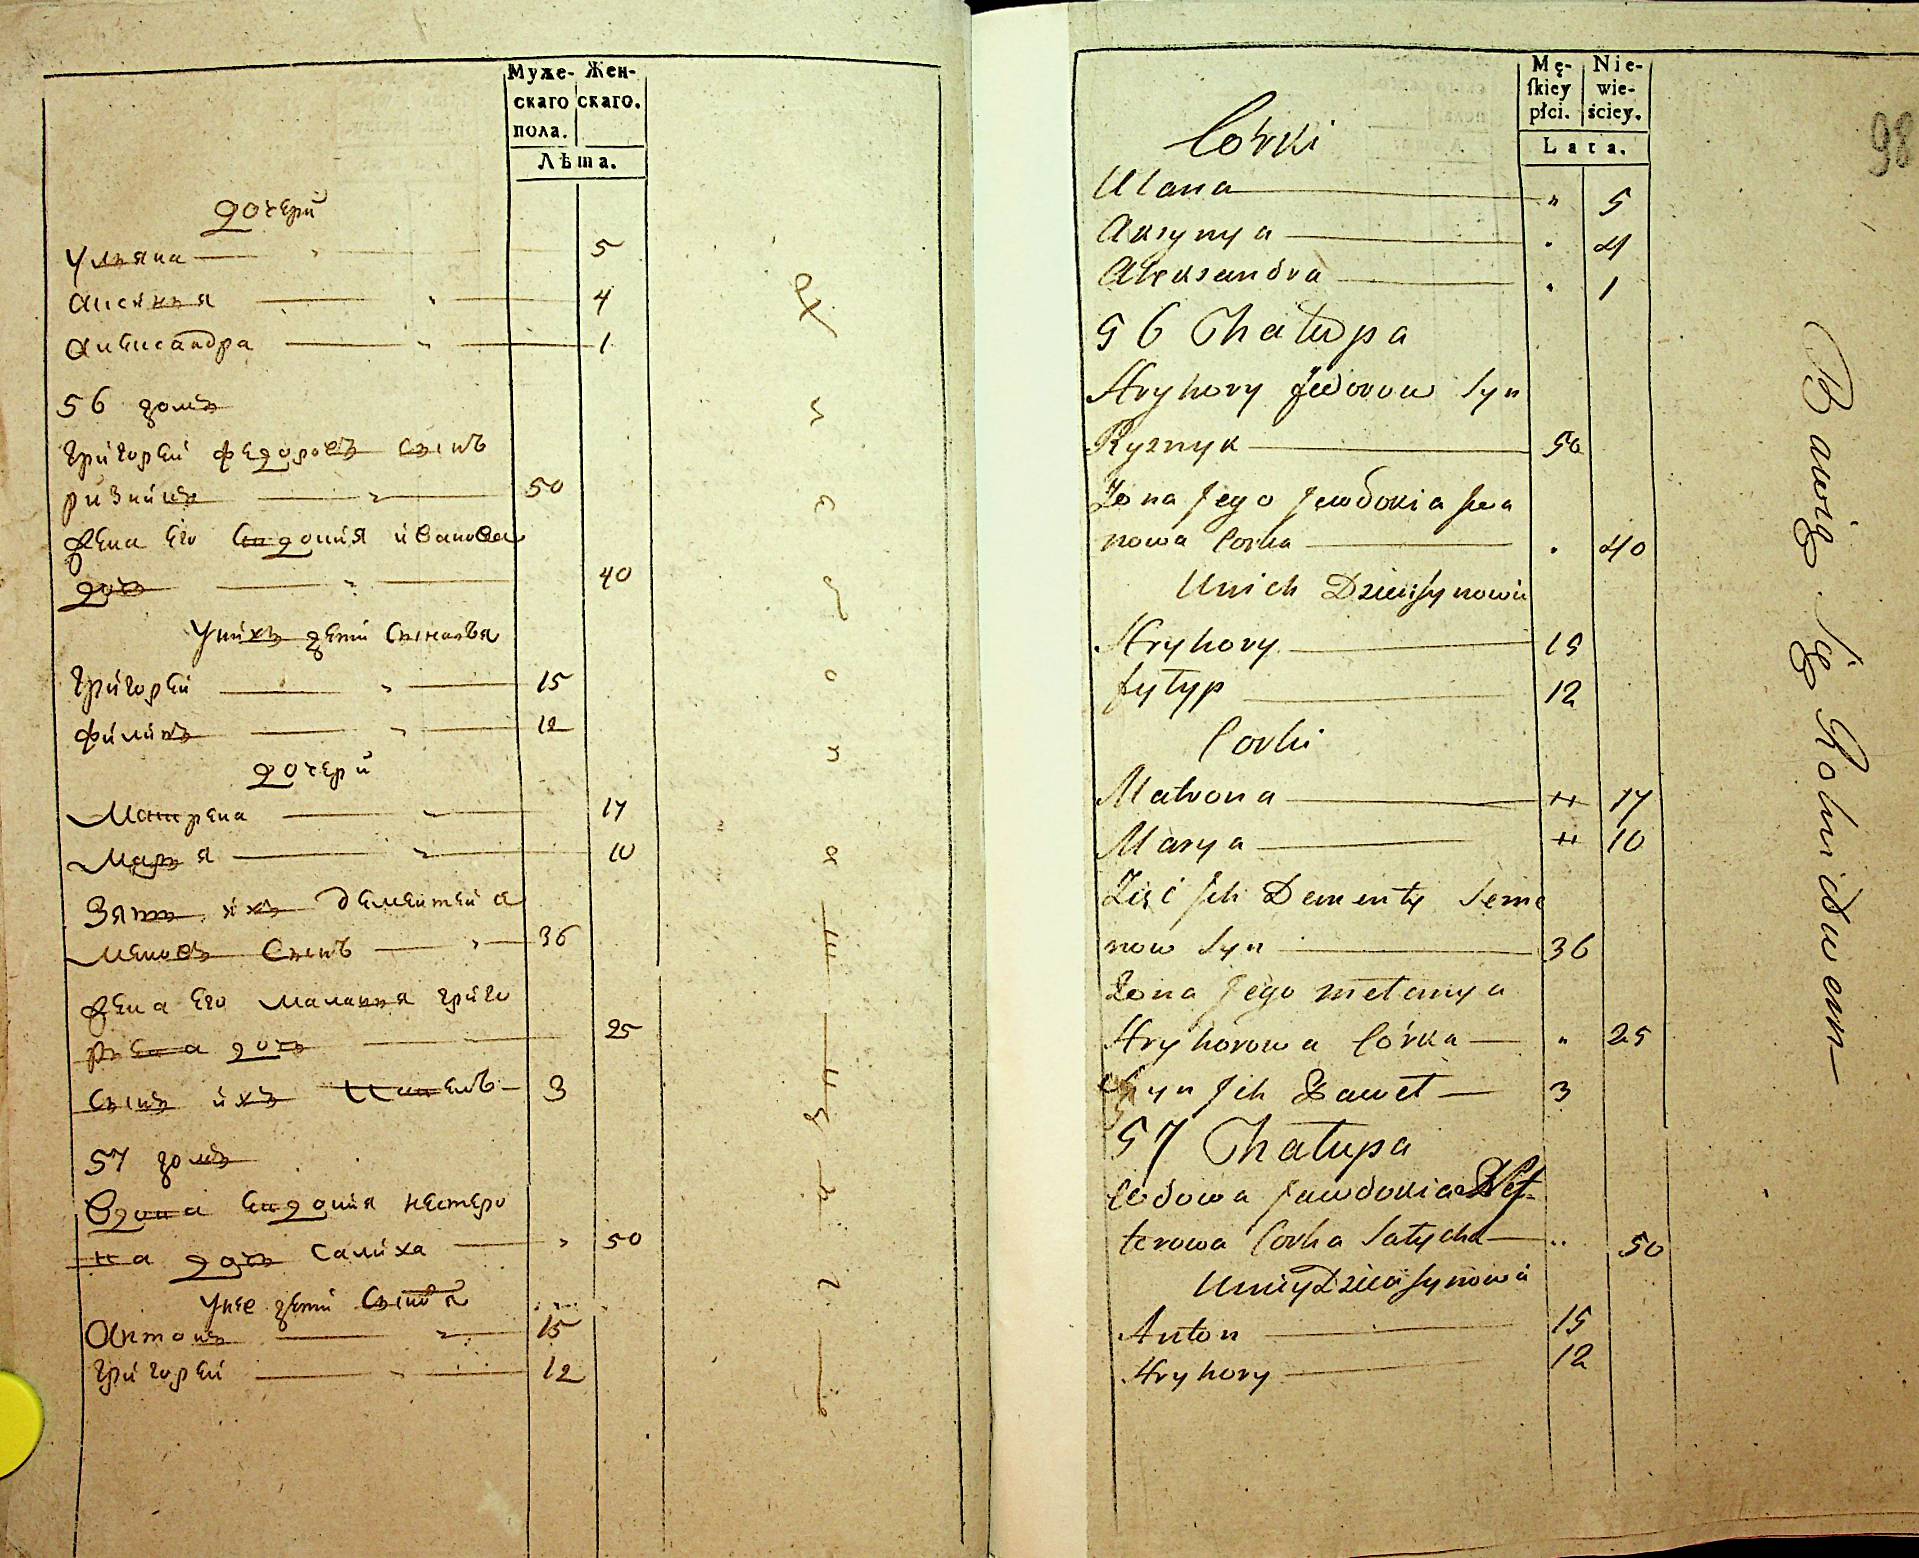 Муже-
скаго
пола.
Жен-
скаго.
Лѣта.
дочери
Ульяна 5
Аксинья 4
Александра 1
56 домъ
Григорей Федоровъ сынъ
Ризникъ 50
Жена его Евдокия Иванова
дочь 40
У нихъ дети сыновья
Григорей 15
Филипъ 12
дочери
Матрена 17
Марья 10
Зять ихъ Дементей Се
меновъ сынъ 36
Жена его Маланья Григо
рьева дочь 25
Сынъ ихъ Павелъ 3
57 домъ
Вдова Евдокия Нестеро
ва дочь Салиха 50
У нее дети сыновья
Антонъ 15
Григорей 12
Mę-
ſkiey
płci.
Nie-
wie-
ściey.
Lata.
98
Córki
Ulana " 5
Axynya " 4
Alexandra " 1
56 Chałupa
Hryhory Fedorow Syn
Ryznyk 50
Żona Jego Jewdokia Iwa
nowa Corka " 40
U nich Dzieci Synowie
Hryhory 15
Fyłyp 12
Corki
Matrona " 17
Marya " 10
Zięć Ich Dementy Seme
now Syn 36
Żona Jego Mełanya
Hryhorowa Córka " 25
Syn Ich Paweł 3
57 Chałupa
Wdowa Jewdokia Nes
terowa Corka Sałycha " 50
U niey Dzieci Synowie
Anton 15
Hryhory 12
Bawią Się Rolnictwem